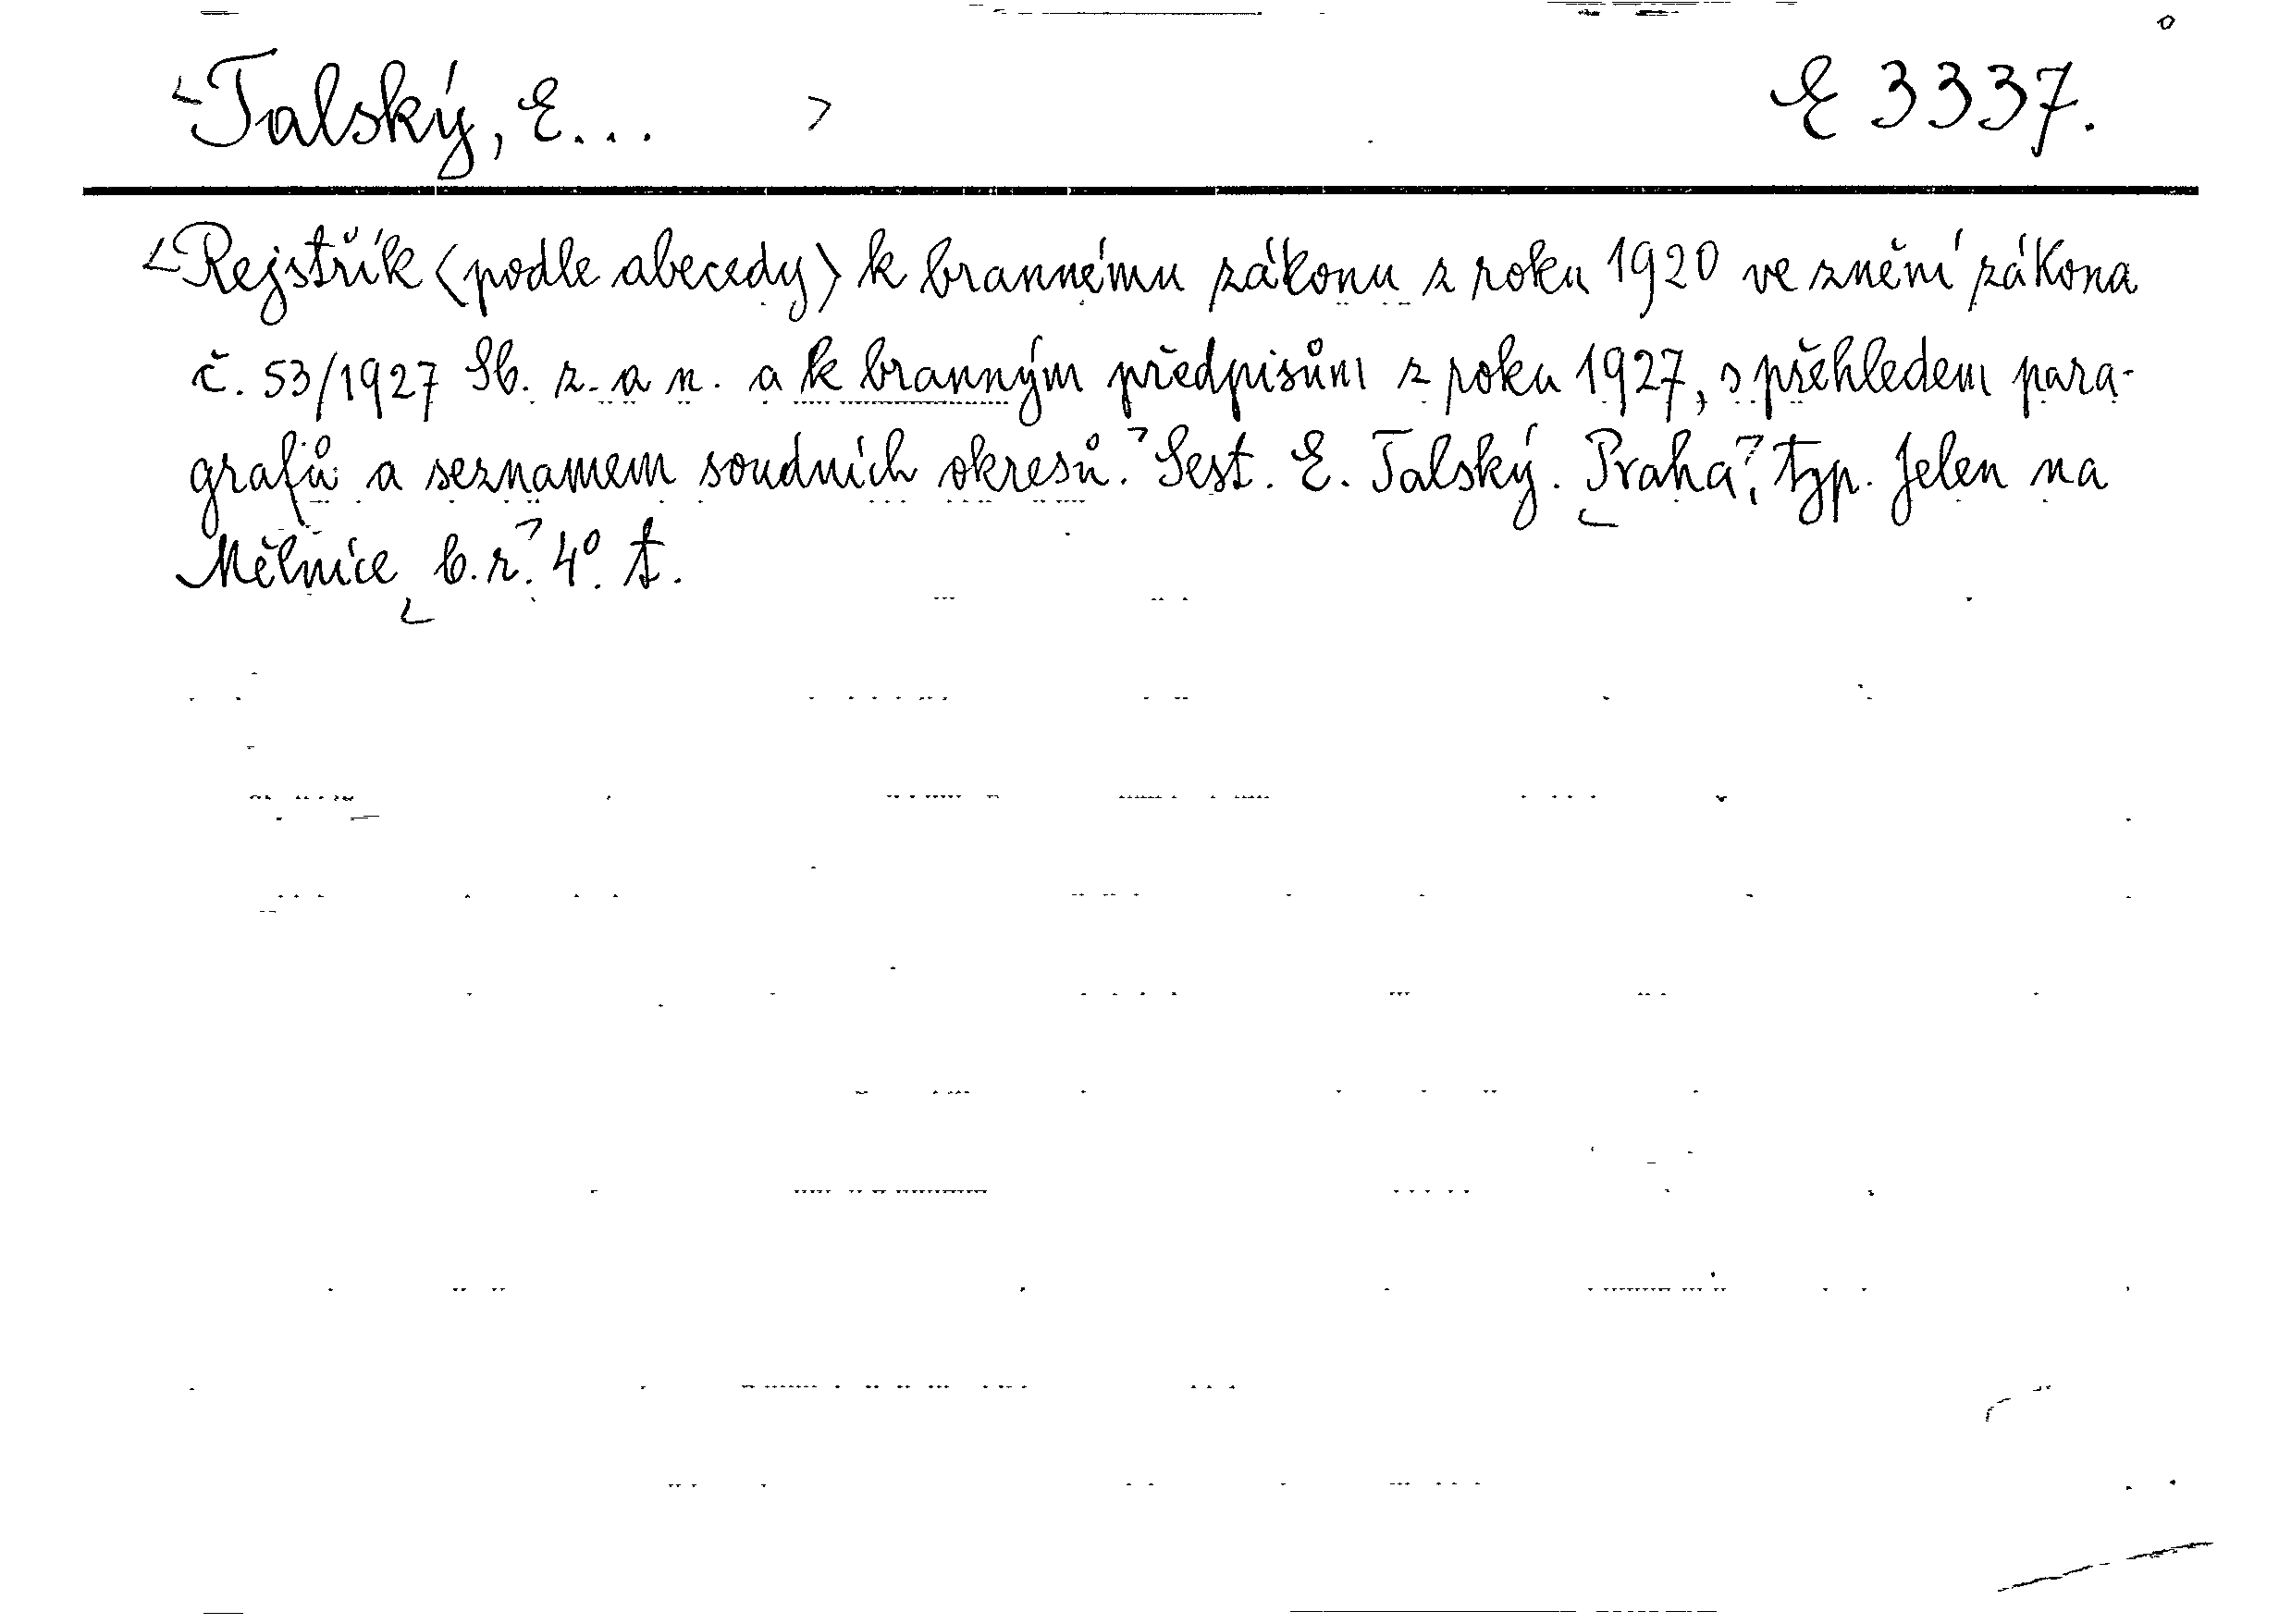 Talský, E... E 3337.
Rejstřík (podle abecedy) k brannému zákonu z roku 1920 ve znění zákona
č. 53/1927 Sb. z. a n. a k branným předpisům z roku 1927, s přehledem para-
grafů a seznamem soudních okresů. Sest. E. Talský. Praha, typ. Jelen na
Mělníce, b. r. 4°. t.